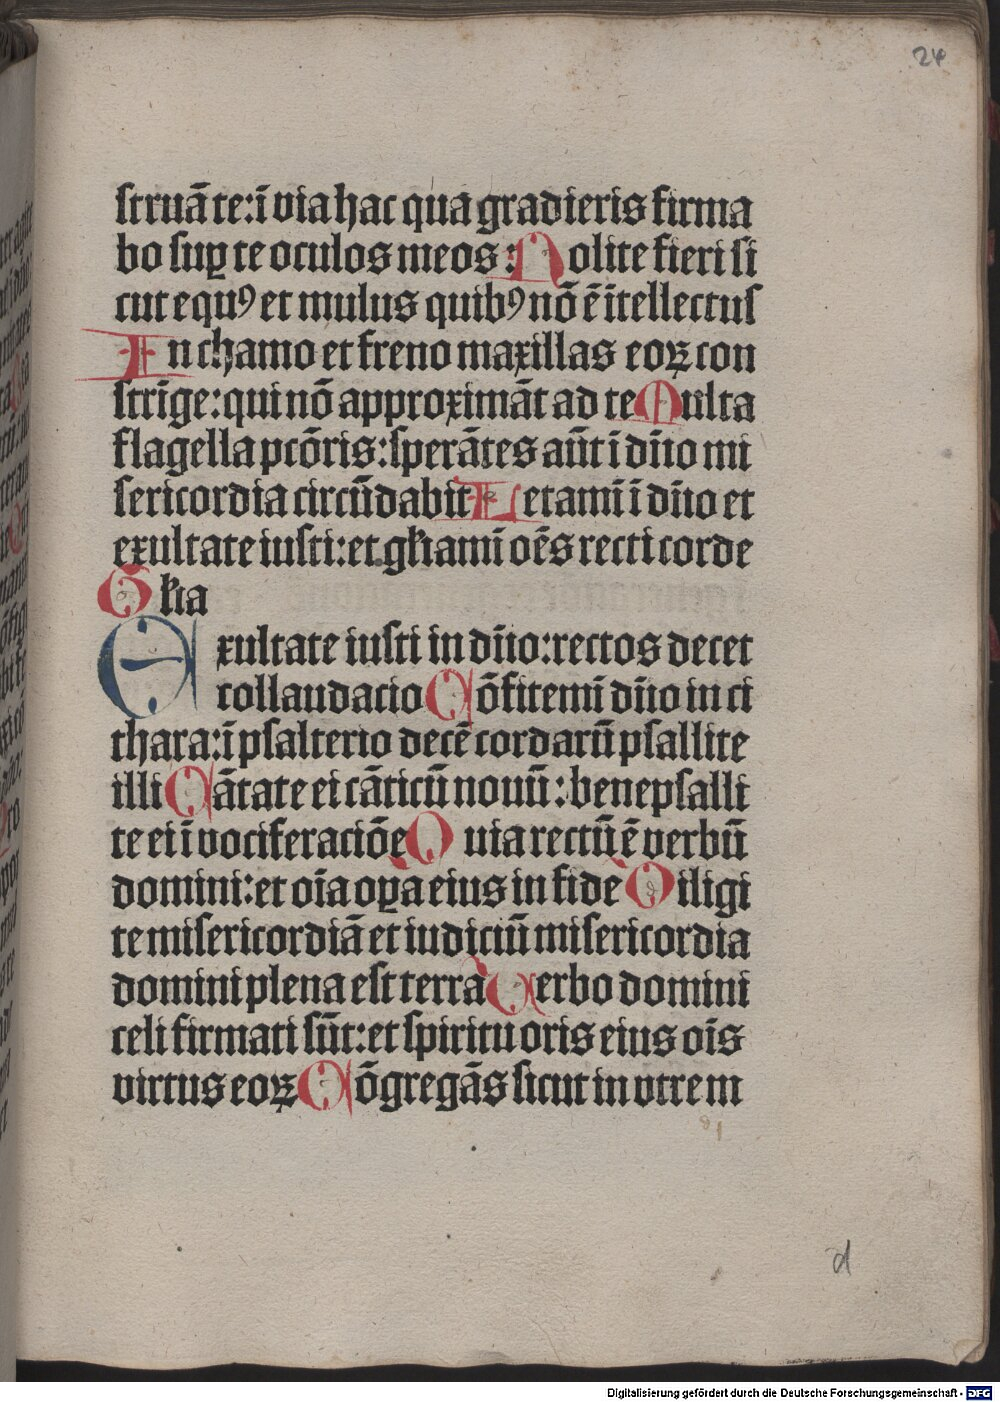 24
struā te:ī via hac qua gradieris firma
bo suꝑ te oculos meos : Nolite fieri si
cut equꝰ et mulus quibꝰ nō ē ītellectus
In chamo et freno maxillas eoꝝ con
strīge: qui nō approximāt ad te Multa
flagella pctōris: sperātes aūt ī dño mi
sericordia circūdabit Letamī ī dño et
exultate iusti: et gl̄iamī oēs recti corde
Gl̄ia
Exultate iusti in dño: rectos decet
collaudacio Cōfitemī dño in ci
thara: ī psalterio decē cordarū psallite
illi Cātate ei cāticū nouū: bene psalli
te ei ī vociferaciōe Quia rectū ē verbū
domini: et oīa oꝑa eius in fide Diligi
te misericordiā et iudiciū misericordia
domini plena est terra Verbo domini
celi firmati sūt: et spiritu oris eius oīs
virtus eoꝝ Cōgregās sicut in vtrem
d
Digitalisierung gefördert durch die Deutsche Forschungsgemeinschaft - DFG